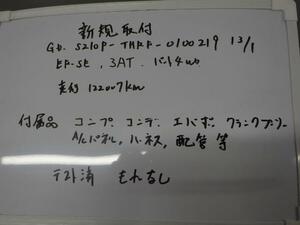 新規取付
GD. S210P-THRF-0100219 13/1
EF-SE, 3AT. パートタイム4WD
走行 122007km
付属品 コンプ. コンデ. エバポ. クランクプーリー
A/Cパネル, ハーネス, 配管 等
テスト済 もれなし